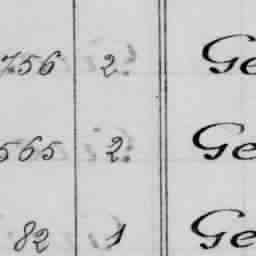 756 2. Ge
565 2. Ge
82 1 Ge